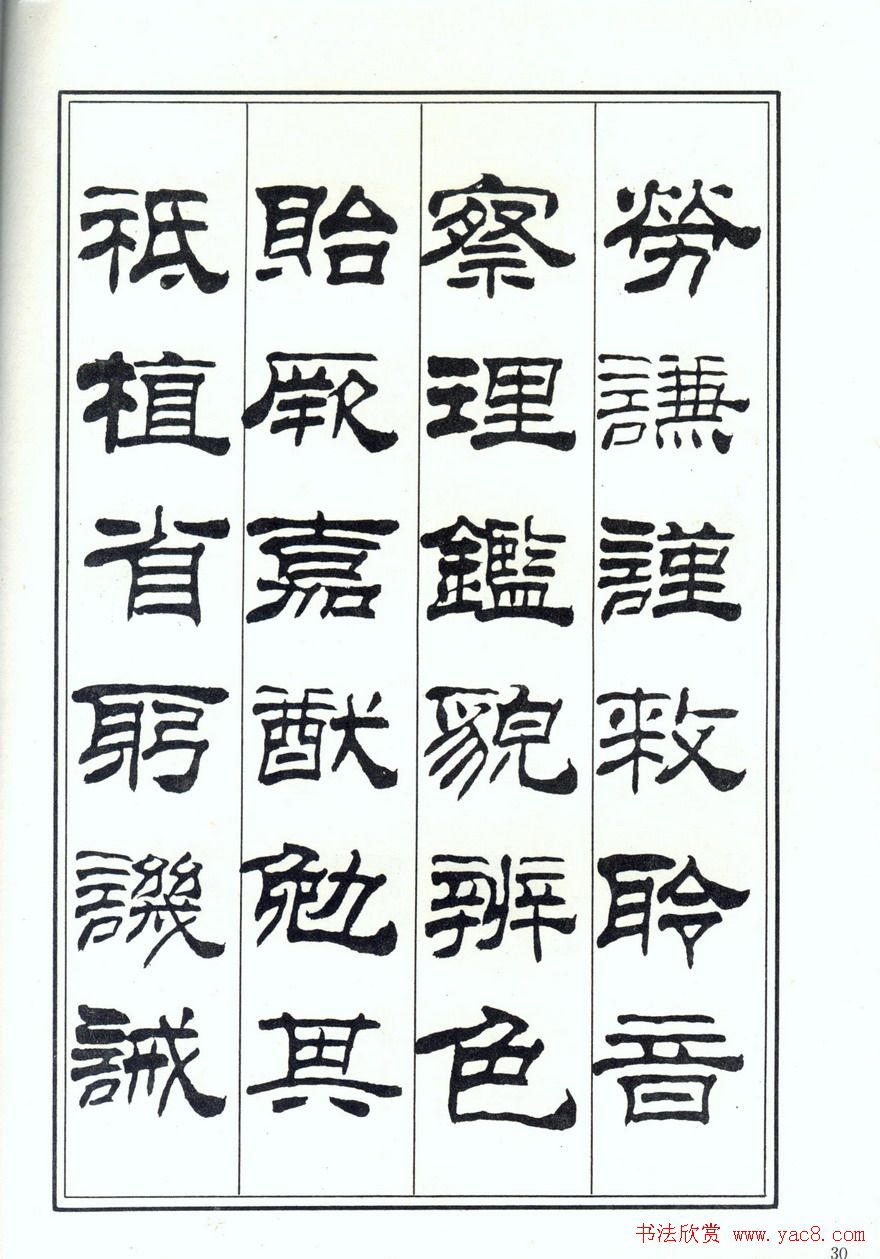 勞謙謹敕聆音
察理鑑貌辨色
貽厥嘉猷勉其
祗植省躬譏誡
书法欣赏 www.yac8.com
30